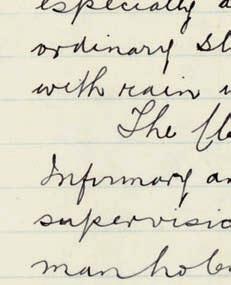 especially a
ordinary st
with rain
The fl
Infirmary an
supervisio
manholes